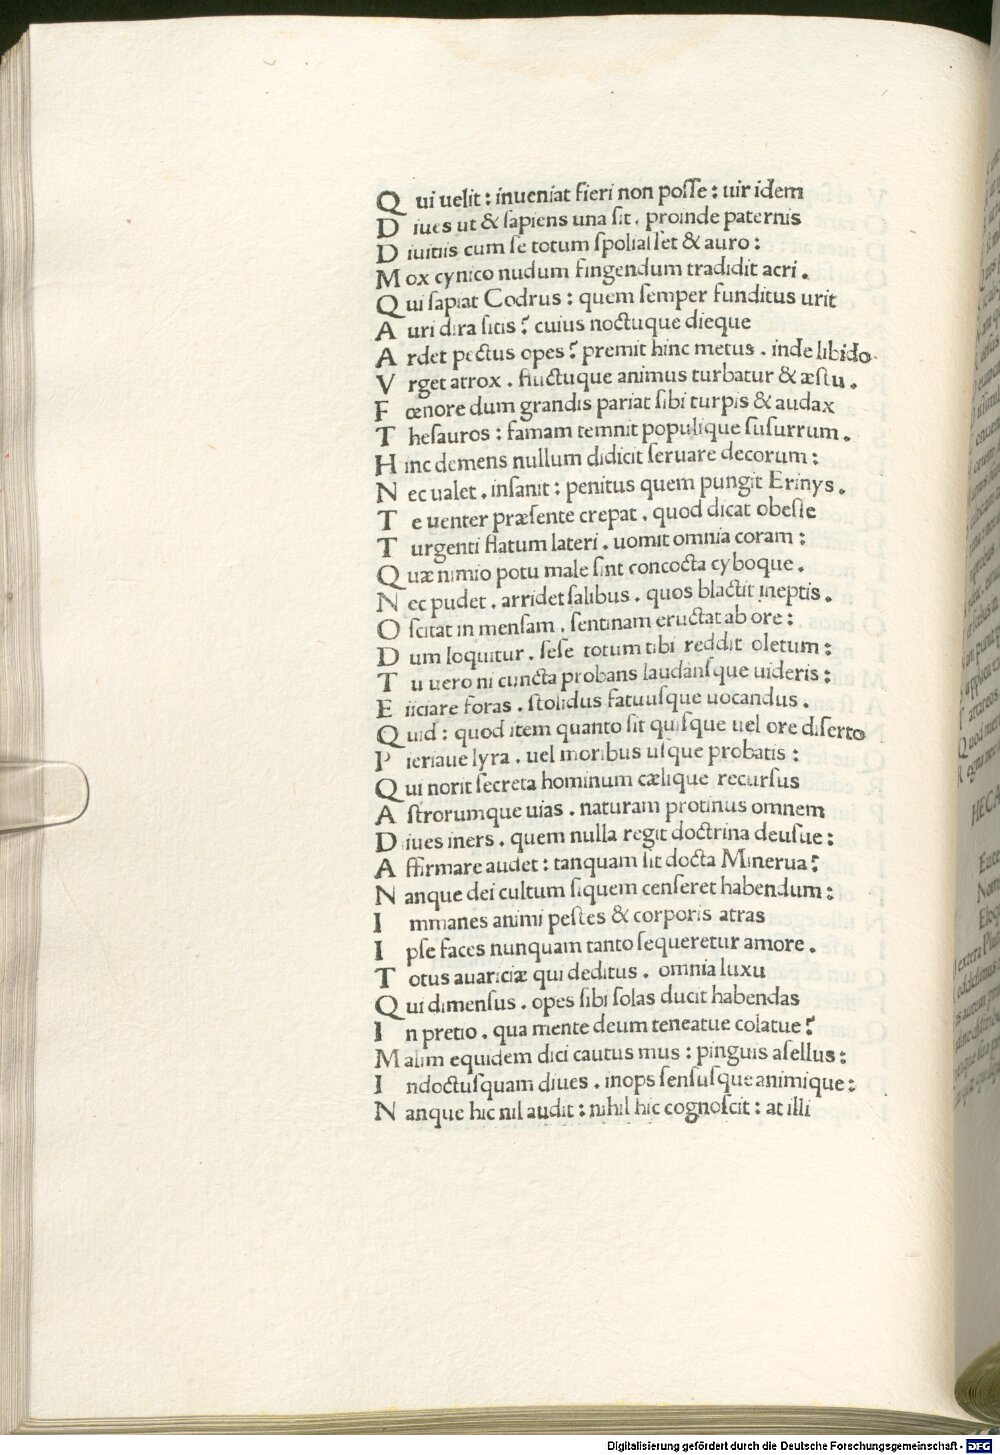 Qui uelit : inueniat fieri non posse : uir idem
Diues ut & sapiens una sit . proinde paternis
Diuitiis cum se totum spoliasset & auro :
Mox cynico nudum fingendum tradidit acri .
Qui sapiat Codrus : quem semper funditus urit
Auri dira sitis ? cuius noctuque dieque
Ardet pectus opes ? premit hinc metus . inde libido
Vrget atrox . fluctuque animus turbatur & æstu .
Fœnore dum grandis pariat sibi turpis & audax
Thesauros : famam temnit populique susurrum .
Hinc demens nullum didicit seruare decorum :
Nec ualet . insanit : penitus quem pungit Erinys .
Te uenter præsente crepat . quod dicat obesse
Turgenti flatum lateri . uomit omnia coram :
Quæ nimio potu male sint concocta cyboque .
Nec pudet . arridet salibus . quos blactit ineptis .
Oscitat in mensam . sentinam eructat ab ore :
Dum loquitur . sese totum tibi reddit oletum :
Tu uero ni cuncta probans laudansque uideris :
Eiiciare foras . stolidus fatuusque uocandus .
Quid : quod item quanto sit quisque uel ore diserto
Pieriaue lyra . uel moribus usque probatis :
Qui norit secreta hominum cælique recursus
Astrorumque uias . naturam protinus omnem
Diues iners . quem nulla regit doctrina deusue :
Affirmare audet : tanquam sit docta Minerua ?
Nanque dei cultum siquem censeret habendum :
Immanes animi pestes & corporis atras
Ipse faces nunquam tanto sequeretur amore .
Totus auariciæ qui deditus . omnia luxu
Qui dimensus . opes sibi solas ducit habendas
In pretio . qua mente deum teneatue colatue ?
Malim equidem dici cautus mus : pinguis asellus :
Indoctusquam diues . inops sensusque animique :
Nanque hic nil audit : nihil hic cognoscit : at illi
HECA
Eute
Nom
Eloq
Digitalisierung gefördert durch die Deutsche Forschungsgemeinschaft - DFG